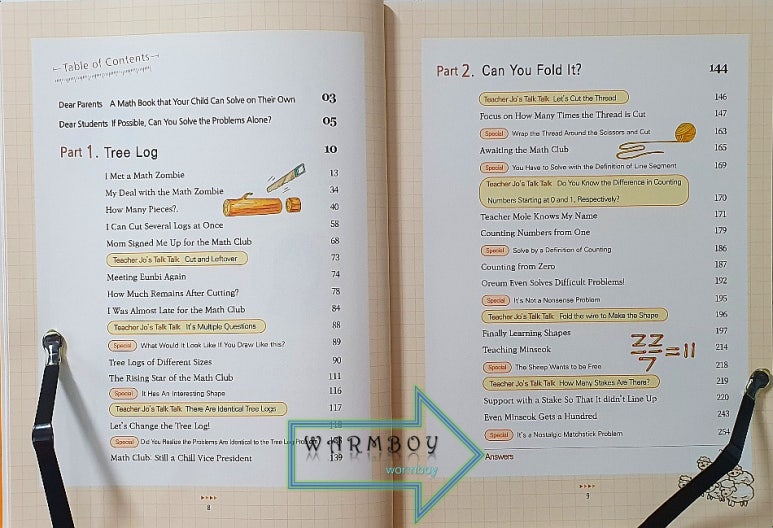 Table of Contents
Dear Parents A Math Book that Your Child Can Solve on Their Own 03
Dear Students If Possible, Can You Solve the Problems Alone? 05
Part 1. Tree Log 10
I Met a Math Zombie 13
My Deal with the Math Zombie 34
How Many Pieces?. 40
I Can Cut Several Logs at Once 58
Mom Signed Me Up for the Math Club 68
Teacher Jo's Talk Talk Cut and Leftover 73
Meeting Eunbi Again 74
How Much Remains After Cutting? 78
I Was Almost Late for the Math Club 84
Teacher Jo's Talk Talk It's Multiple Questions 88
Special What Would It Look Like If You Draw Like this? 89
Tree Logs of Different Sizes 90
The Rising Star of the Math Club 111
Special It Has An Interesting Shape 116
Teacher Jo's Talk Talk There Are Identical Tree Logs 117
Let's Change the Tree Log!
Special Did You Realize the Problems Are Identical to the Tree Log
Math Club: Still a Chill Vice President 139
8
Part 2. Can You Fold It? 144
Teacher Jo's Talk Talk Let's Cut the Thread 146
Focus on How Many Times the Thread is Cut 147
Special Wrap the Thread Around the Scissors and Cut 163
Awaiting the Math Club 165
Special You Have to Solve with the Definition of Line Segment 169
Teacher Jo's Talk Talk Do You Know the Difference in Counting
Numbers Starting at 0 and 1, Respectively? 170
Teacher Mole Knows My Name 171
Counting Numbers from One 179
Special Solve by a Definition of Counting 186
Counting from Zero 187
Oreum Even Solves Difficult Problems! 192
Special It's Not a Nonsense Problem 195
Teacher Jo's Talk Talk Fold the wire to Make the Shape 196
Finally Learning Shapes 197
Teaching Minseok 214
22/7=11
Special The Sheep Wants to be Free 218
Teacher Jo's Talk Talk How Many Stakes Are There? 219
Support with a Stake So That It didn't Line Up 220
Even Minseok Gets a Hundred 243
Special It's a Nostalgic Matchstick Problem 254
Answers
9
WARMBOY
wormboy